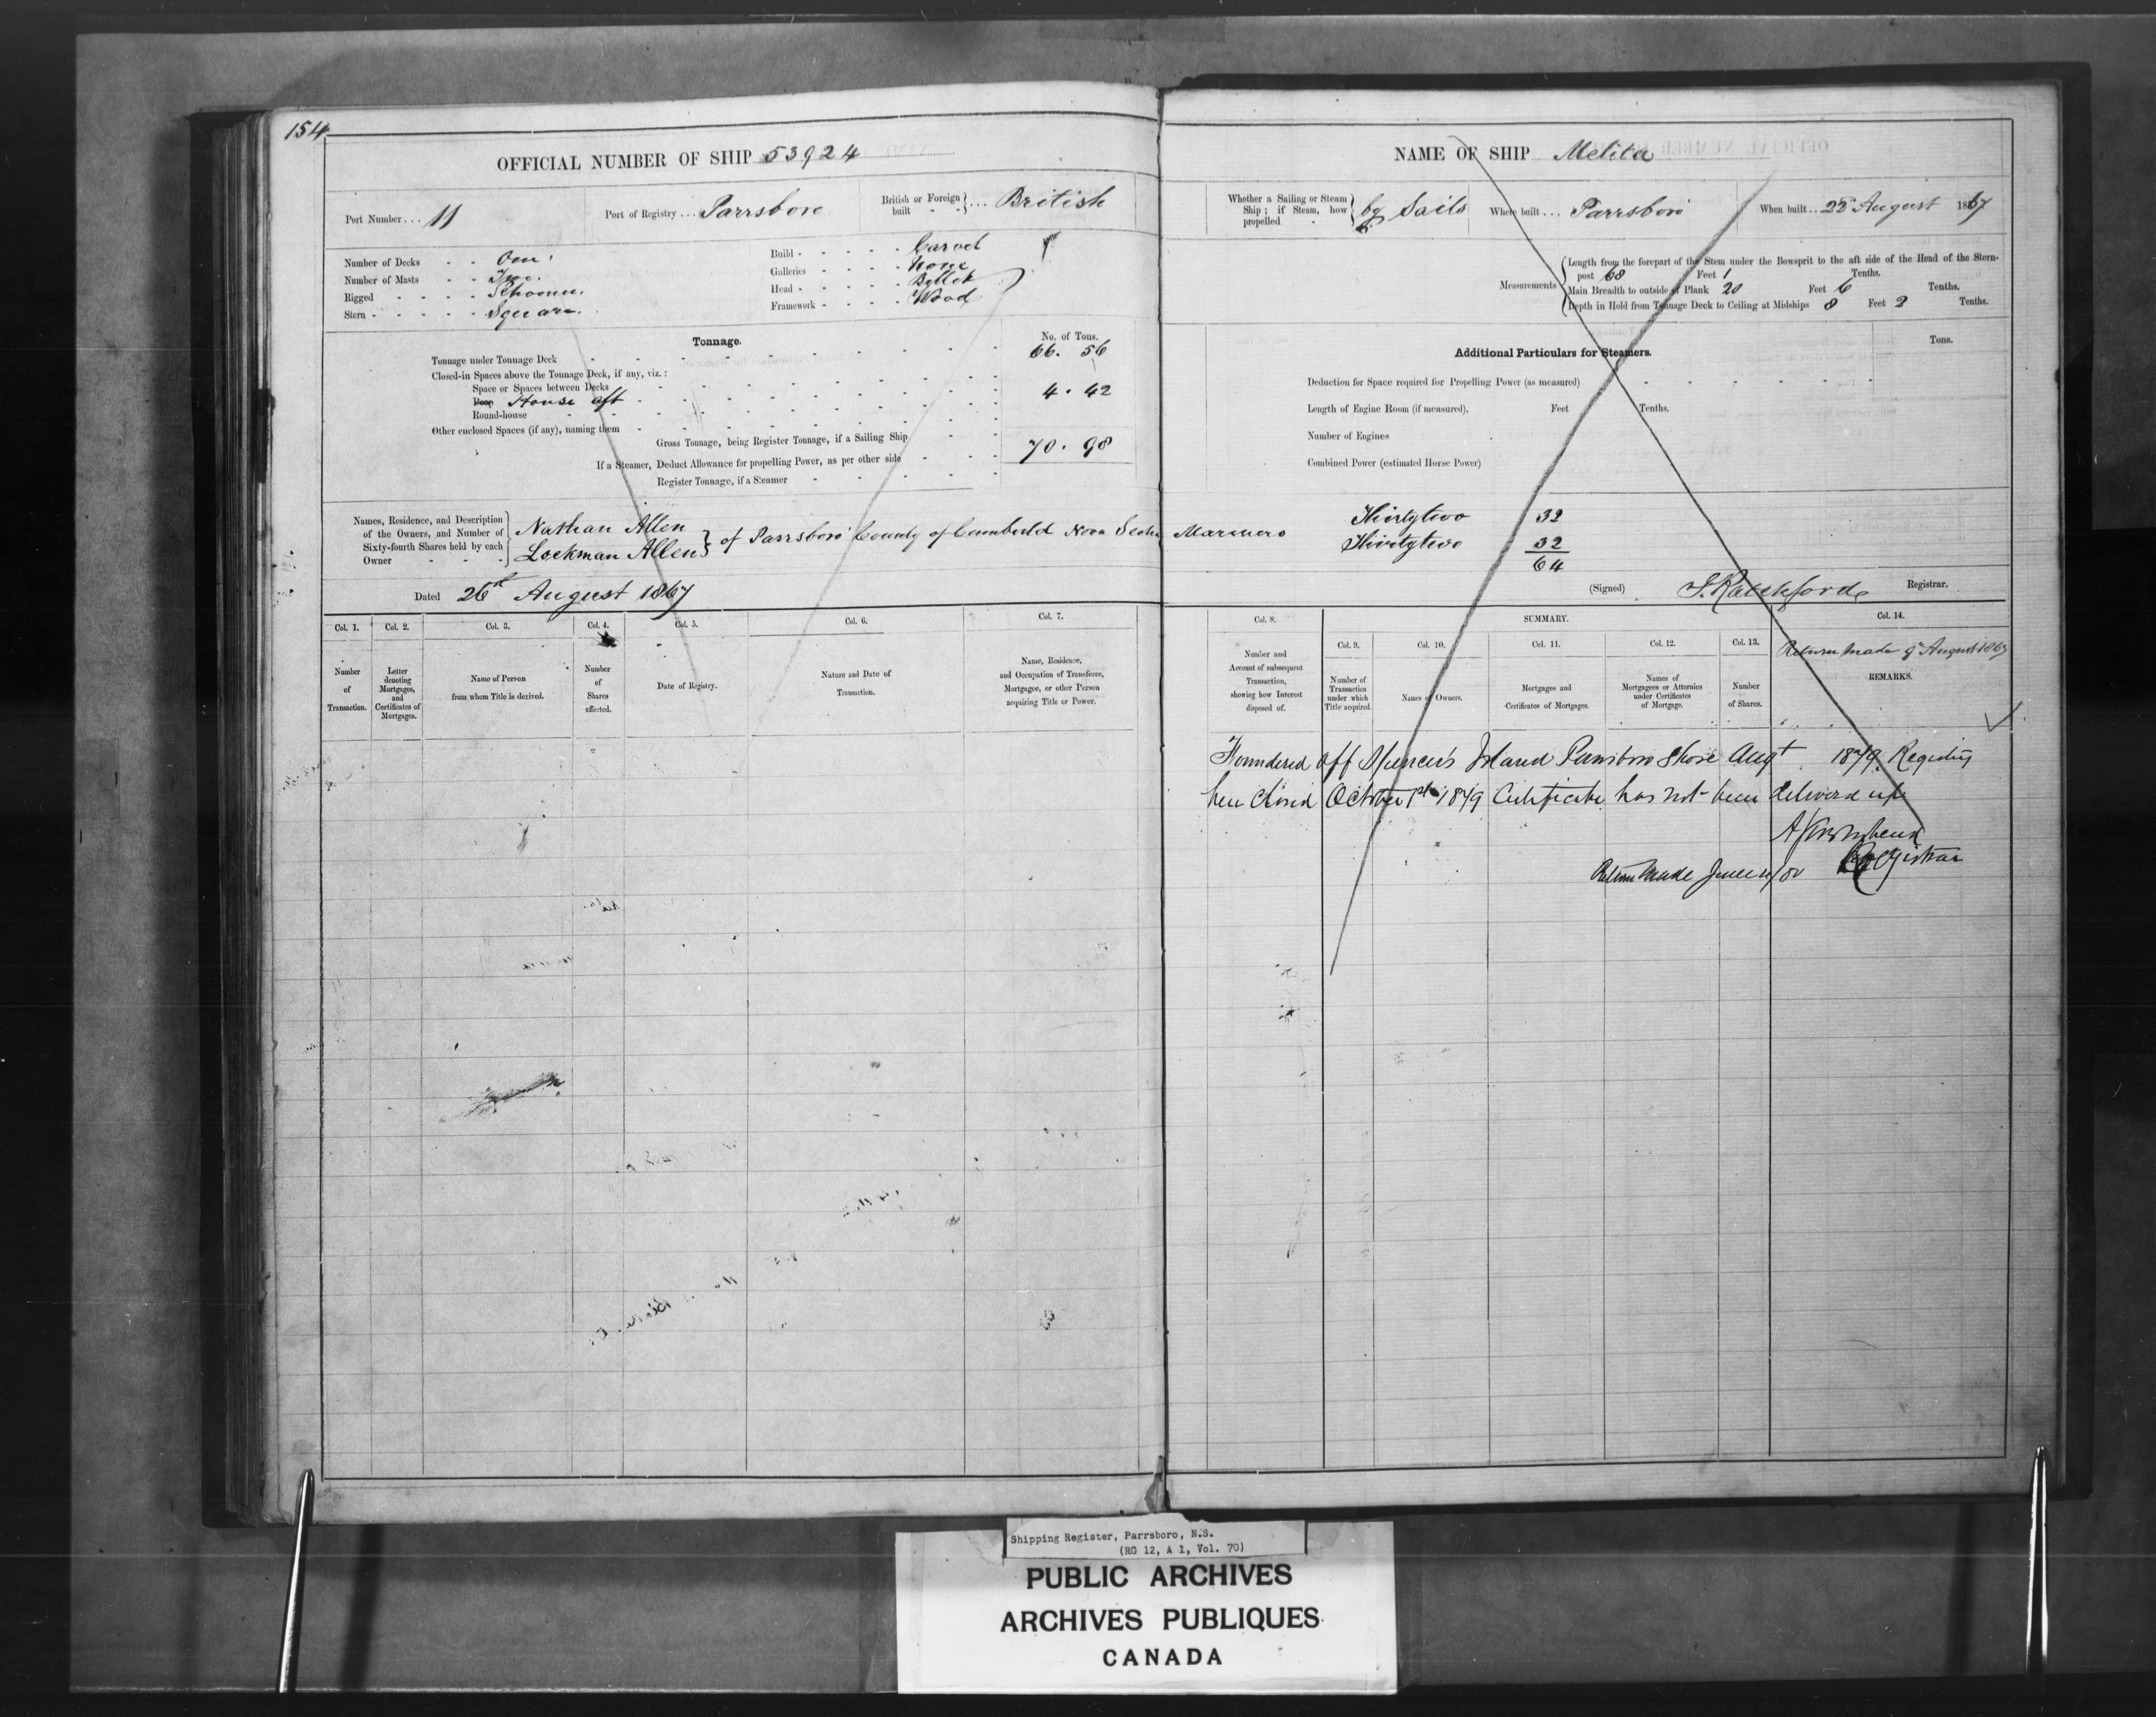 154
OFFICIAL NUMBER OF SHIP 53924
Port Number ... 11
Port of Registry ... Parrsboro
British or Foreign built - - } ... British
Number of Decks - - One
Number of Masts - - Two
Rigged - - - - Schooner
Stern - - - - - Square
Build - - - - - Carvel
Galleries - - - - None
Head - - - - - Billet
Framework - - - - Wood
Tonnage.
No. of Tons.
Tonnage under Tonnage Deck 66. 56
Closed-in Spaces above the Tonnage Deck, if any, viz.:
Space or Spaces between Decks
Poop House aft 4. 42
Round-house
Other enclosed Spaces (if any), naming them
Gross Tonnage, being Register Tonnage, if a Sailing Ship 70. 98
If a Steamer, Deduct Allowance for propelling Power, as per other side
Register Tonnage, if a Steamer
Names, Residence, and Description of the Owners, and Number of Sixty-fourth Shares held by each Owner
Nathan Allen
Lockman Allen } of Parrsboro County of Cumberld Nova Scotia
Dated 26th August 1867
Col. 1. Col. 2. Col. 3. Col. 4. Col. 5. Col. 6. Col. 7.
Number of Transaction.
Letter denoting Mortgages, and Certificates of Mortgages.
Name of Person from whom Title is derived.
Number of Shares affected.
Date of Registry.
Nature and Date of Transaction.
Name, Residence, and Occupation of Transferee, Mortgagee, or other Person acquiring Title or Power.
NAME OF SHIP Melita
Whether a Sailing or Steam Ship; if Steam, how propelled - } by Sails
Where built ... Parrsboro
When built .. 22d August 1867
Measurements
Length from the forepart of the Stem under the Bowsprit to the aft side of the Head of the Stern-
post 68 Feet 1 Tenths.
Main Breadth to outside of Plank 20 Feet 6 Tenths.
Depth in Hold from Tonnage Deck to Ceiling at Midships 8 Feet 2 Tenths.
Additional Particulars for Steamers.
Tons.
Deduction for Space required for Propelling Power (as measured)
Length of Engine Room (if measured), Feet Tenths.
Number of Engines
Combined Power (estimated Horse Power)
Mariners
Thirtytwo 32
Thirtytwo 32
64
(Signed) S. Ratchford Registrar.
Col. 8. SUMMARY. Col. 14.
Col. 9. Col. 10. Col. 11. Col. 12. Col. 13.
Return made August 1867
Number and Account of subsequent Transaction, showing how Interest disposed of.
Number of Transaction under which Title acquired.
Names of Owners.
Mortgages and Certificates of Mortgages.
Names of Mortgagees or Attornies under Certificates of Mortgage.
Number of Shares.
REMARKS.
Foundered off Spencer's Island Parrsboro Shore Augt 1879. Registry
here Closed October 1st 1879 Certificate has not been delivered up
Registrar
Return Made June
Shipping Register, Parrsboro, N.S.
(RG 12, A 1, Vol. 70)
PUBLIC ARCHIVES
ARCHIVES PUBLIQUES
CANADA